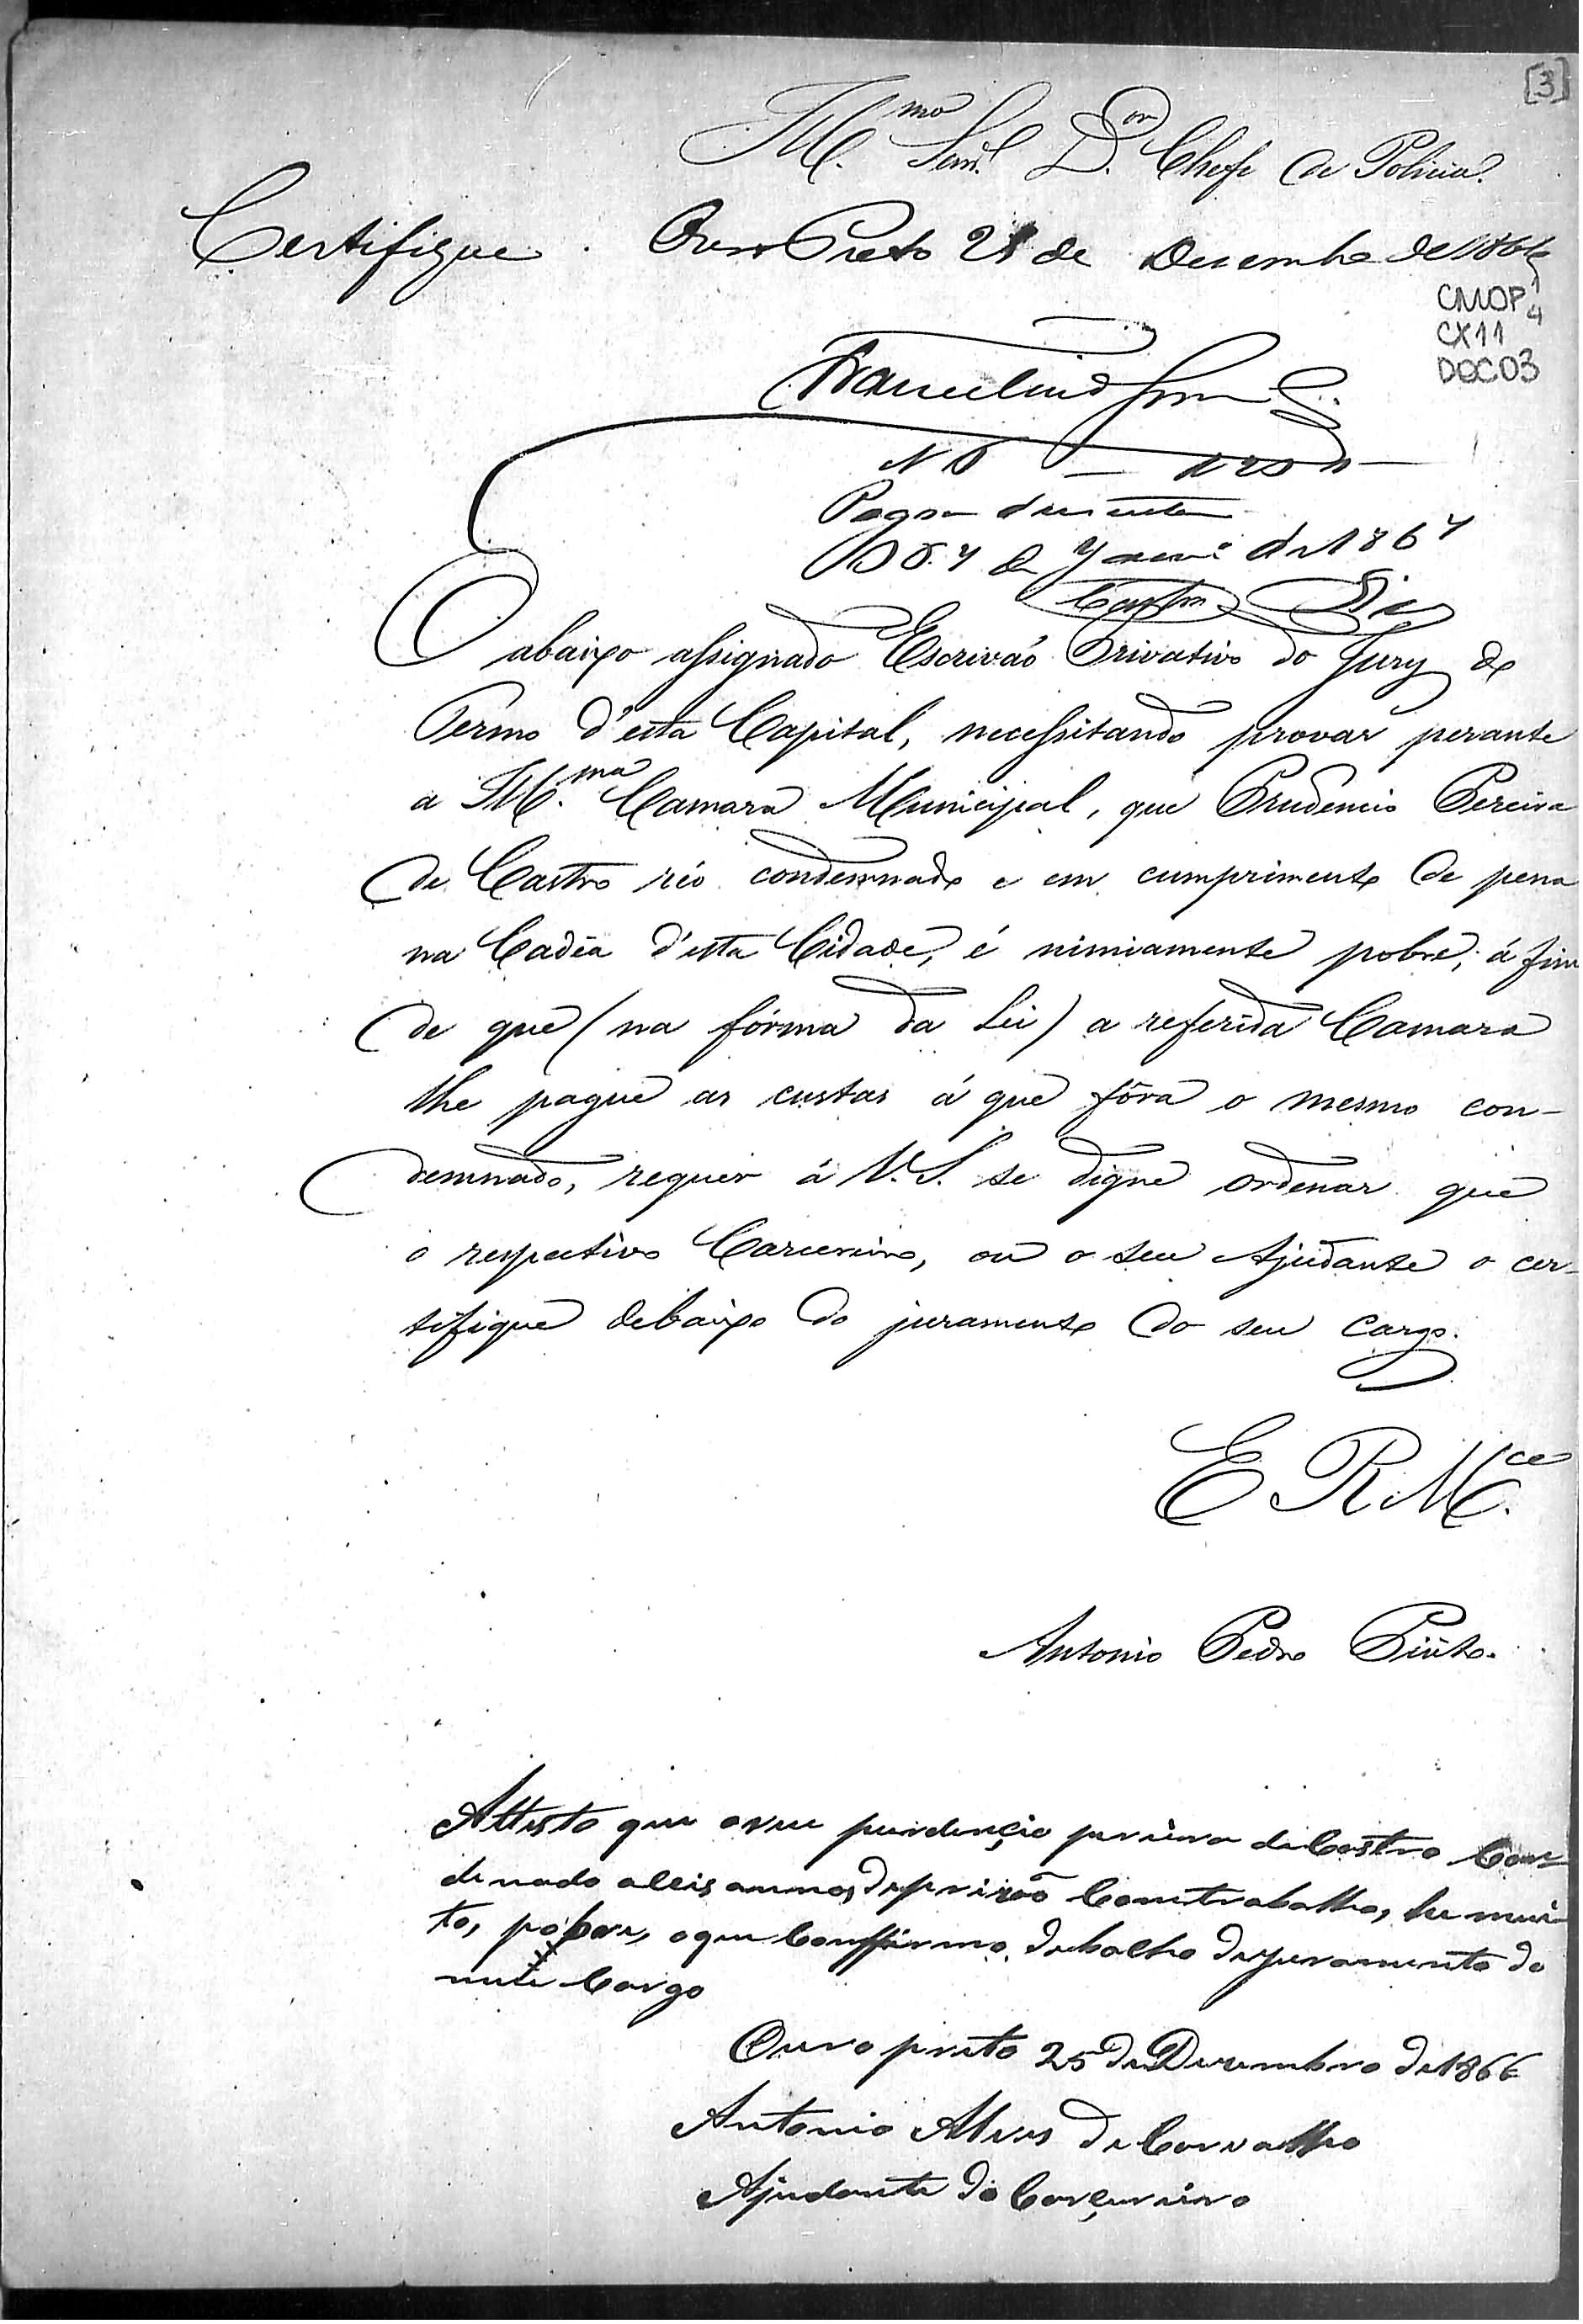 [3]
Ill.mo Senr. D.or Chefe de Policia.
Certifique. Ouro Preto 21 de Dezembro de 1866
CMOP
CX11
DOC03
N 6 — 200
Pagou duzentos
de 1867
Castro Dias
O abaixo assignado Escrivão Privativo do Jury do
Termo d'esta Capital, necessitando provar perante
a Ill.ma Camara Municipal, que Prudencio Pereira
de Castro réo condemnado e em cumprimento de pena
na Cadêa d'esta Cidade, é nimiamente pobre, á fim
de que (na fórma da Lei) a referida Camara
lhe pague as custas á que fôra o mesmo con-
demnado, requer á V. S. se digne ordenar que
o respectivo Carcereiro, ou o seu Ajudante o cer-
tifique debaixo do juramento do seu cargo.
E R M.ce
Antonio Pedro Pinto.
Attesto que o reu purdençio pereira de Castro Con-
denado a seis annos de prizão Com trabalho, he mui-
to, pobere, o que Conffirmo debalho de juramento do
meu Cargo
Ouro preto 25 de Dezembro de 1866
Antonio Alves de Carvalho
Ajudante do Carçereiro